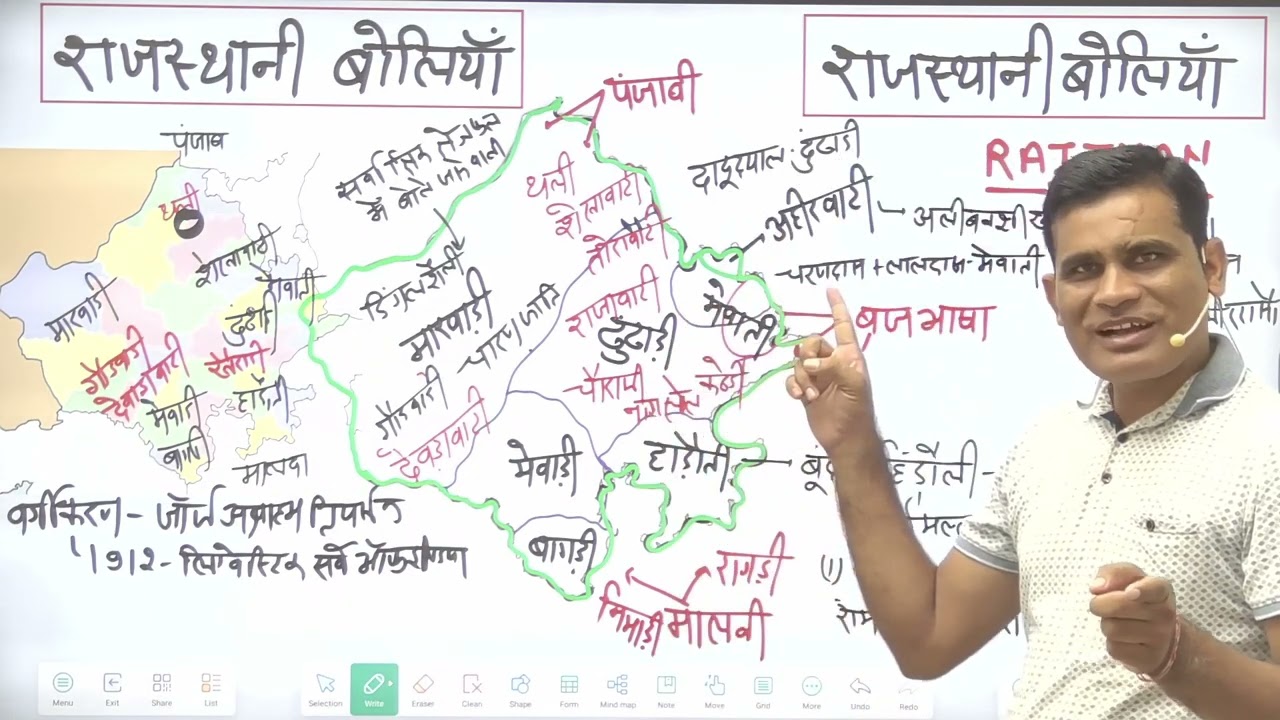 राजस्थानी बोलियाँ
राजस्थानी बोलियाँ
पंजाबी
पंजाब
थली
शेखावाटी
मारवाड़ी
गौडवाडी
देवडावाटी
मेवाडी
हाड़ौती
मालवा
सर्वाधिक क्षेत्रफल
में बोले जाने वाली
थली
शेखावाटी
तोरावाटी
डिंगल शैली
मारवाड़ी
चारण जाति
गौडवाडी
देवड़ावाटी
राजावाटी
ढुंढाड़ी
चौरासी
नागरचोल
मेवाती
मेवाड़ी
हाड़ौती
बागड़ी
दादूदयाल - ढुंढाडी
अहीरवाटी
चरणदास + लालदास - मेवाती
ब्रजभाषा
रागड़ी
निमाड़ी मालवी
वर्गीकरण - जॉर्ज अब्राहम ग्रियर्सन
1912 - लिंग्वेस्टिक सर्वे ऑफ
(1)
Menu
Exit
Share
List
Selection
Write
Eraser
Clean
Shape
Form
Mind map
Note
Move
Grid
More
Undo
Redo